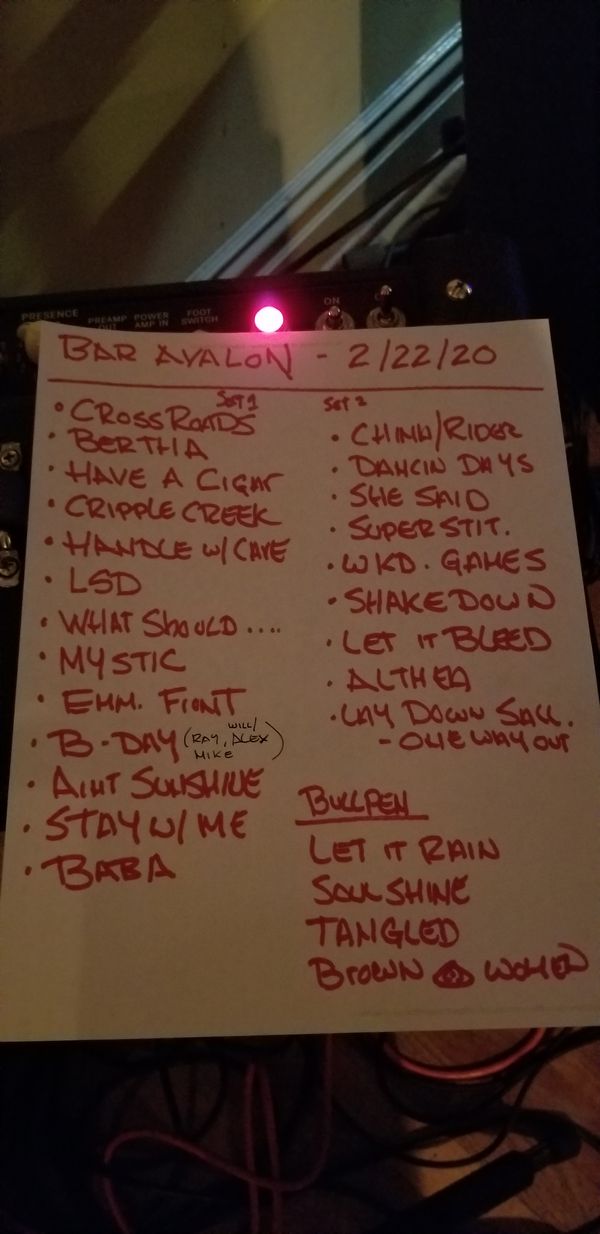 PRESENCE
PREAMP OUT
POWER AMP IN
FOOT SWITCH
ON
BAR AVALON - 2/22/20
SET 1
• CROSSROADS
• BERTHA
• HAVE A CIGAR
• CRIPPLE CREEK
• HANDLE W/ CARE
• LSD
• WHAT SHOULD ....
• MYSTIC
• EMM. FRONT
• B-DAY (RAY, WILL/ ALEX MIKE)
• AINT SUNSHINE
• STAY W/ ME
• BABA
SET 2
• CHINA/RIDER
• DANCIN DAYS
• SHE SAID
• SUPERSTIT.
• WKD. GAMES
• SHAKEDOWN
• LET IT BLEED
• ALTHEA
• LAY DOWN SALL.
- ONE WAY OUT
BULLPEN
LET IT RAIN
SOULSHINE
TANGLED
BROWN WOMEN